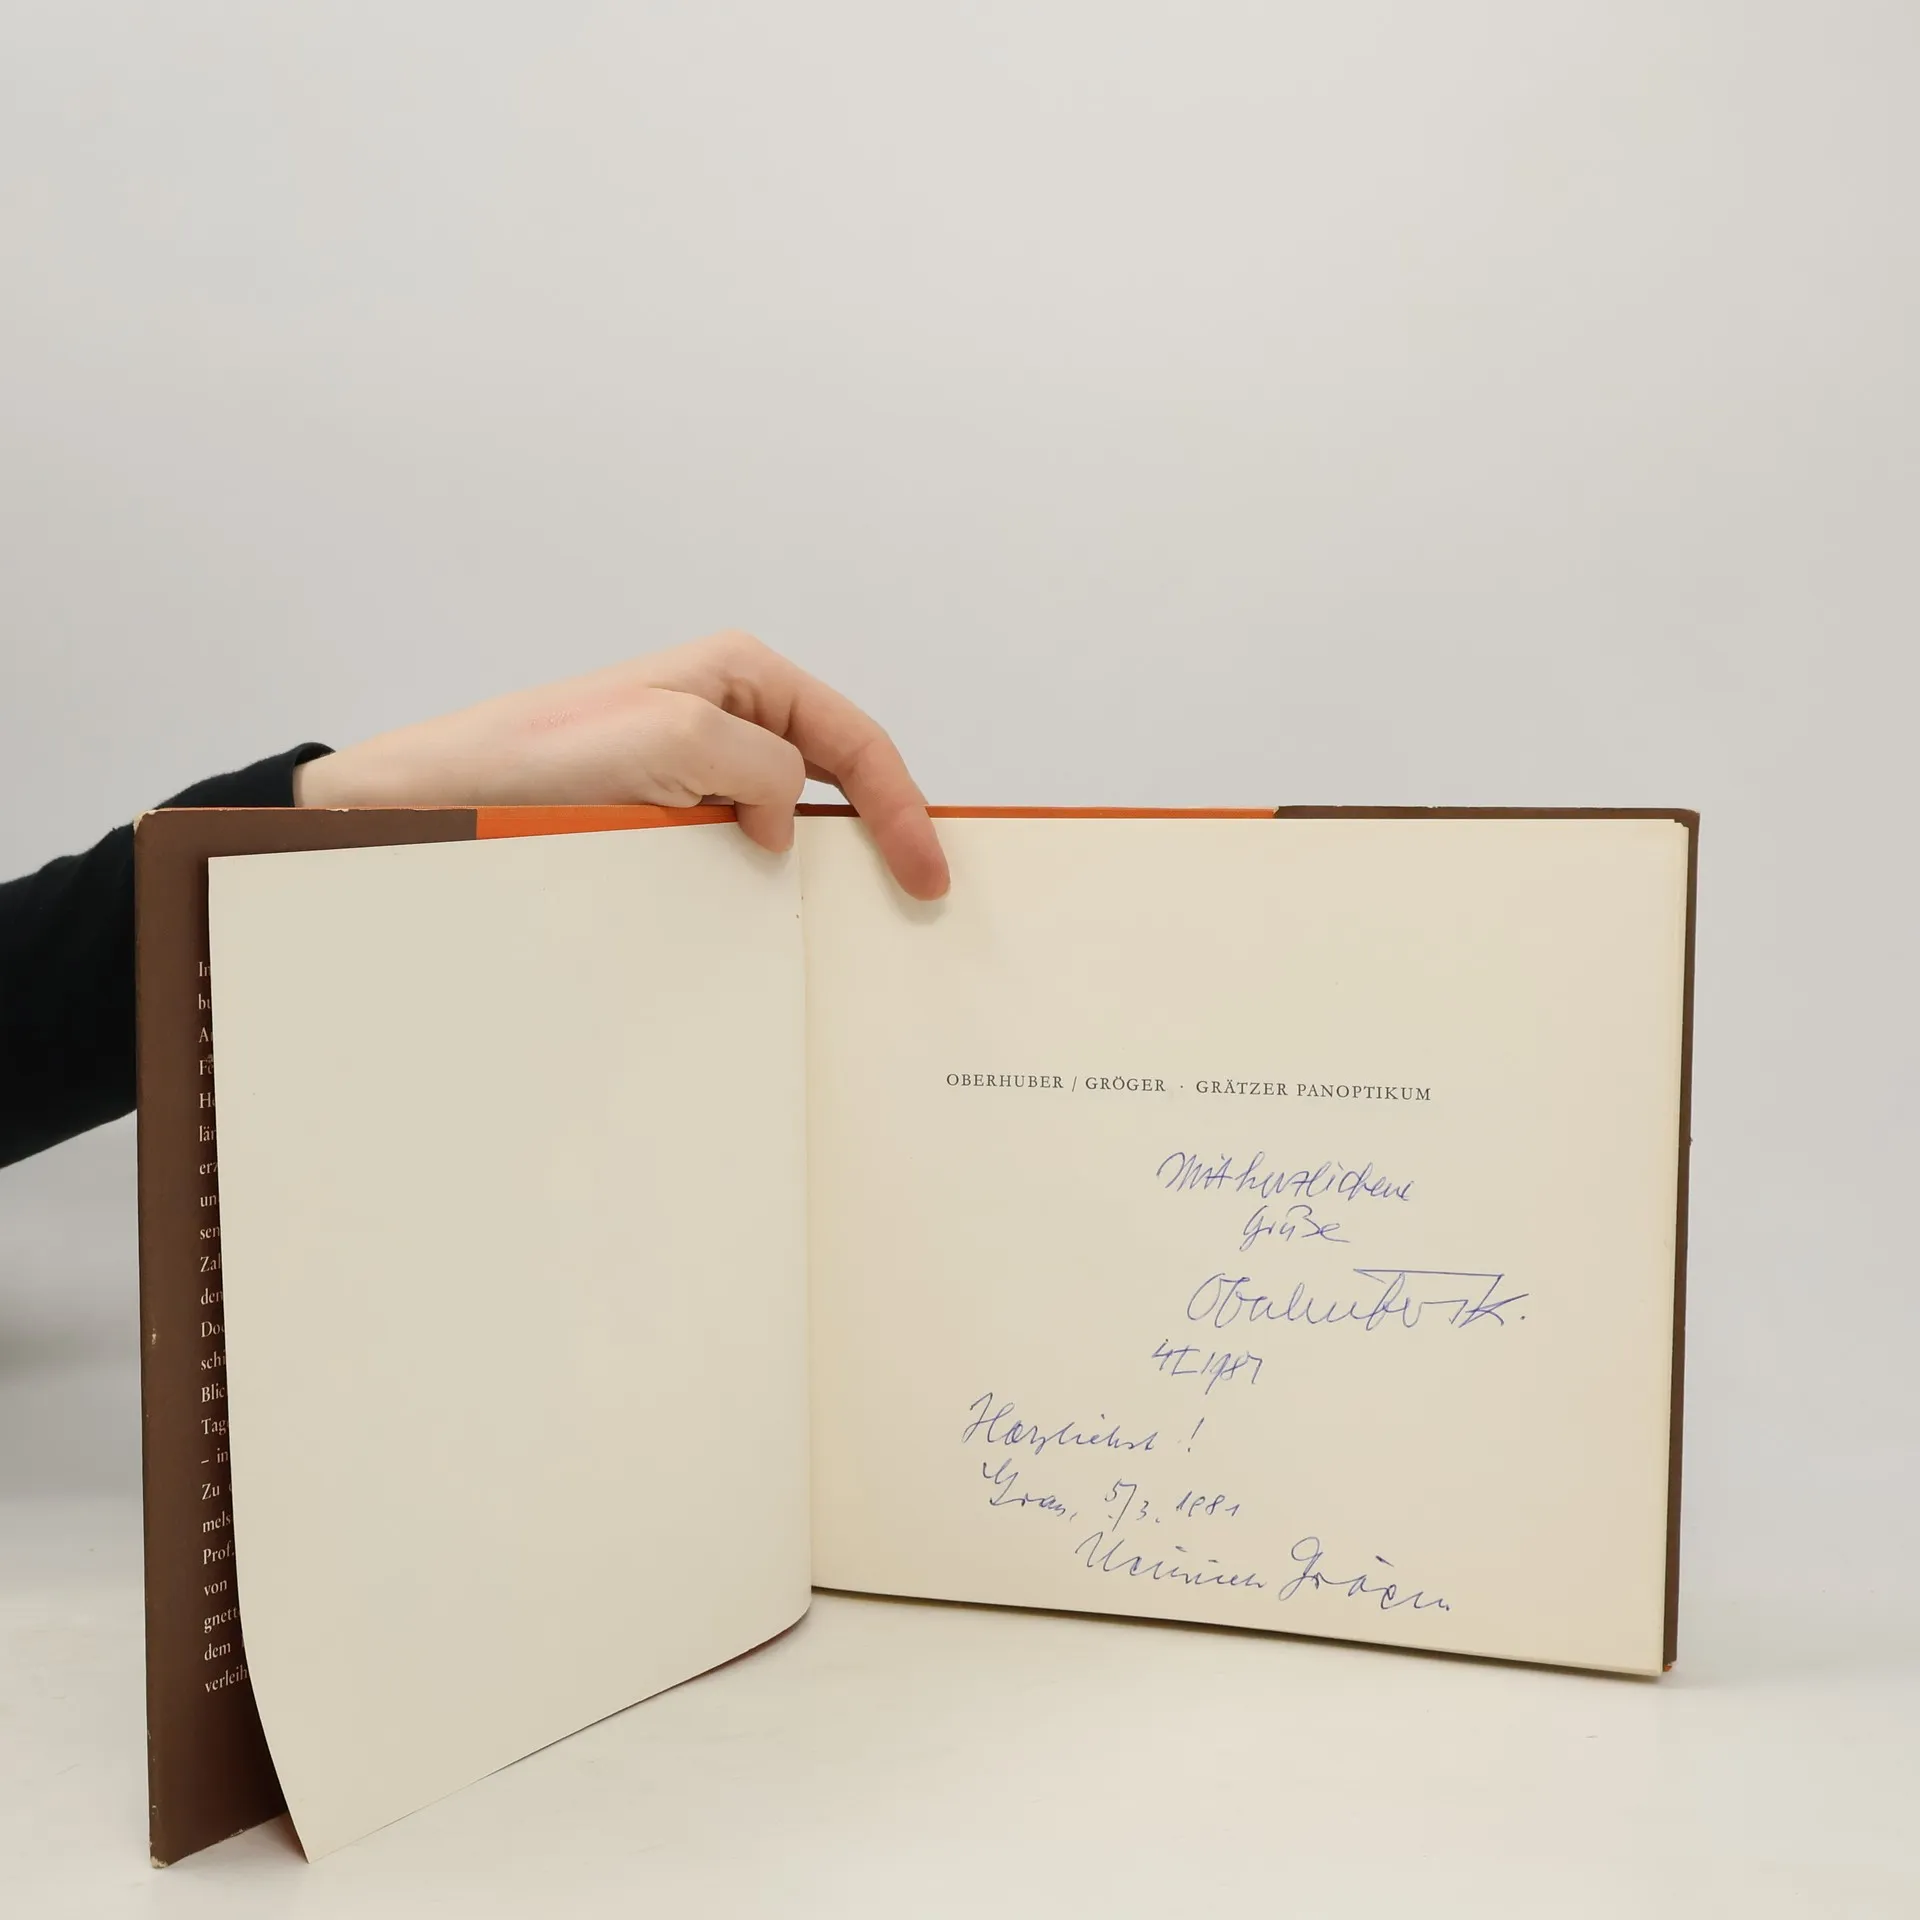 In
bu
A
Fe
He
län
erz
un
sen
Zal
den
Do
schi
Blic
Tag
– in
Zu
mels
Prof.
von
gnett
dem
verleih
OBERHUBER / GRÖGER · GRÄTZER PANOPTIKUM
Mit herzlichene
Grüße
Oberhuber K.
4I 1981
Herzlichst !
Graz, 5/3. 1981
Heinrich Gröger